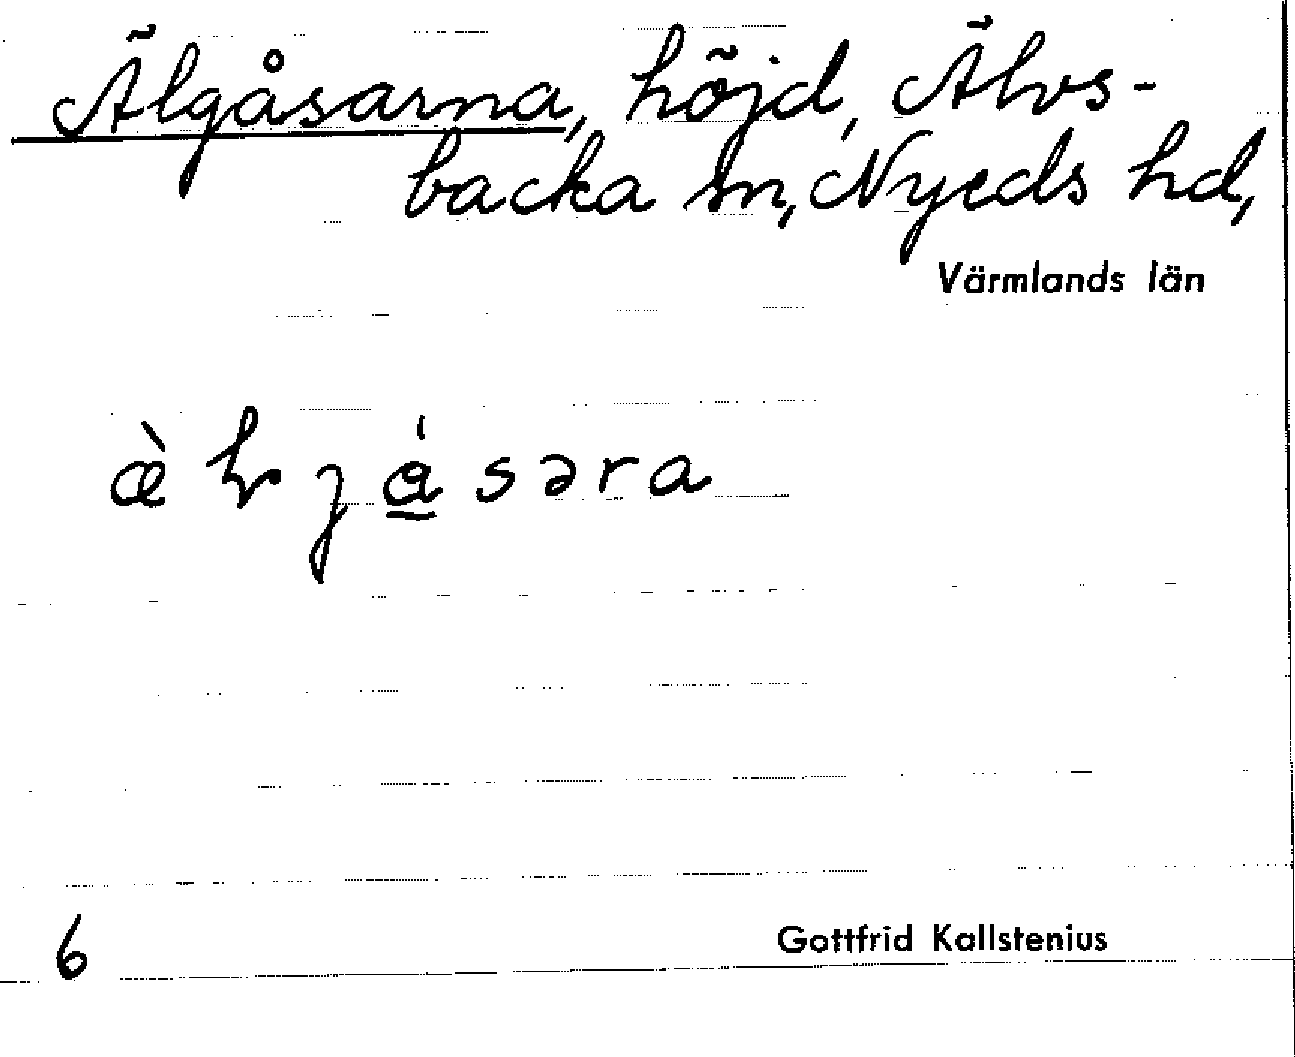 Älgåsarna, höjd, Älvs-
backa sn, Nyeds hd,
Värmlands län
6
Gottfrid Kallstenius